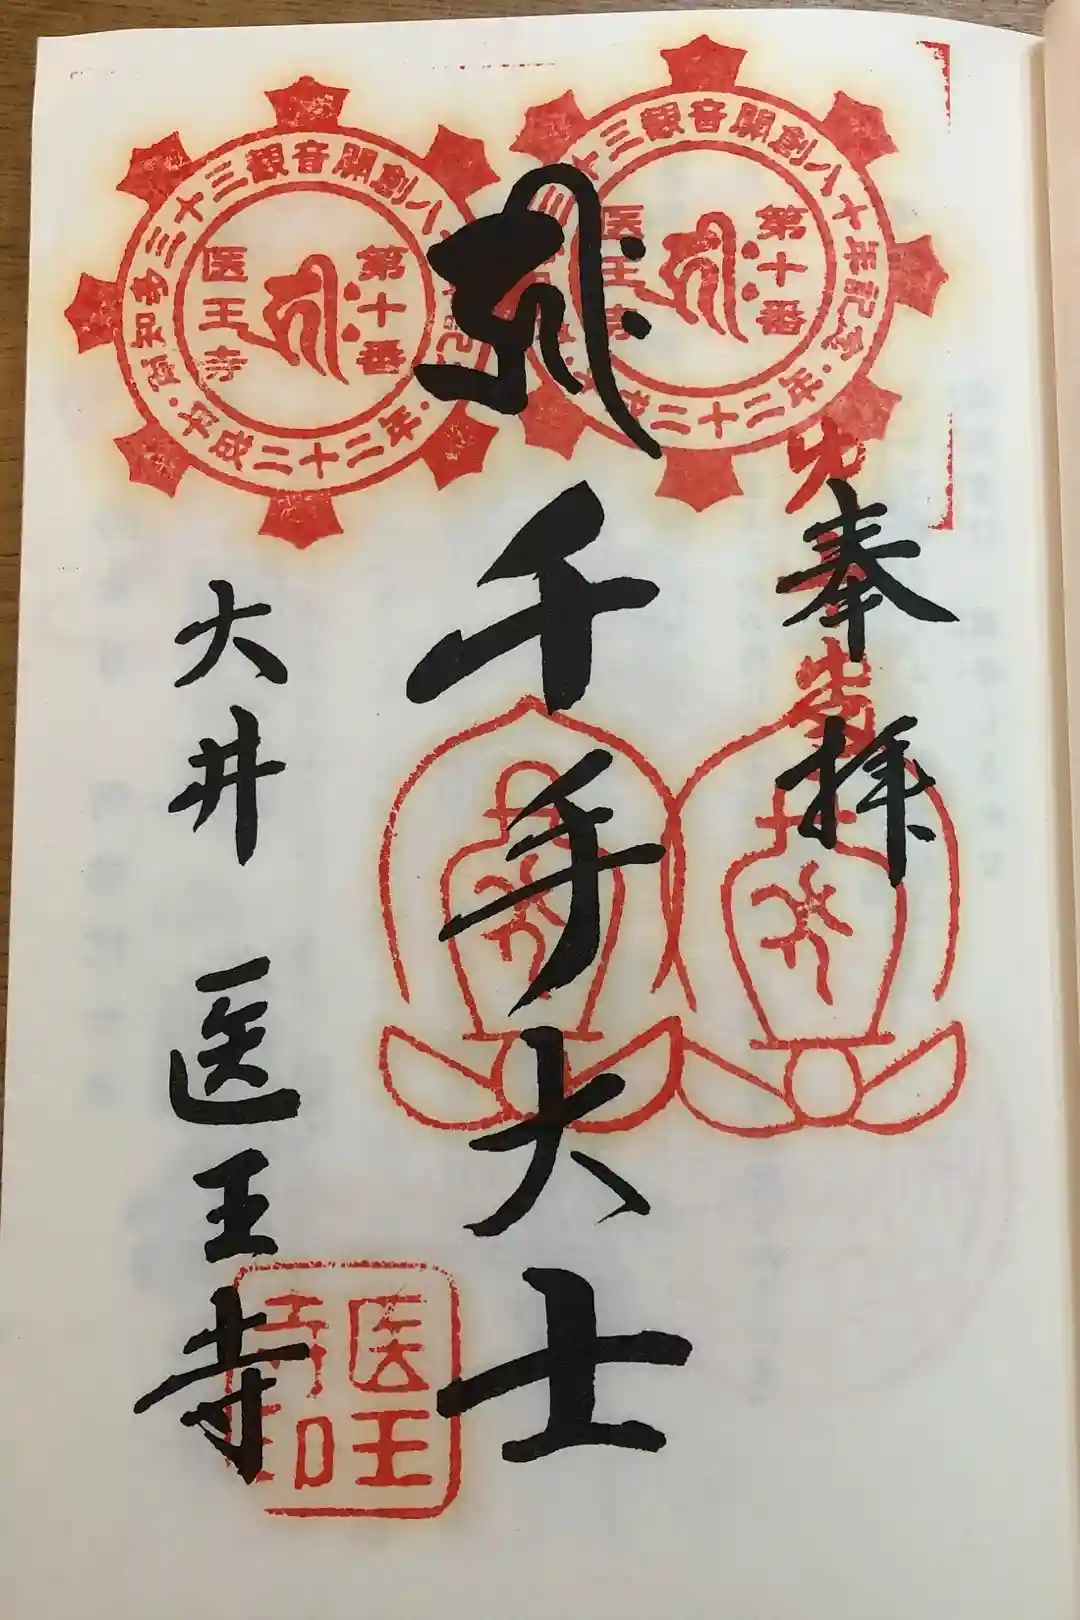 奉拝
千手大士
大井 医王寺
南知多三十三観音開創八十年記念・平成二十二年・
第十番
医王寺
三十三観音開創八十年記念・
第十番
医王寺
医王